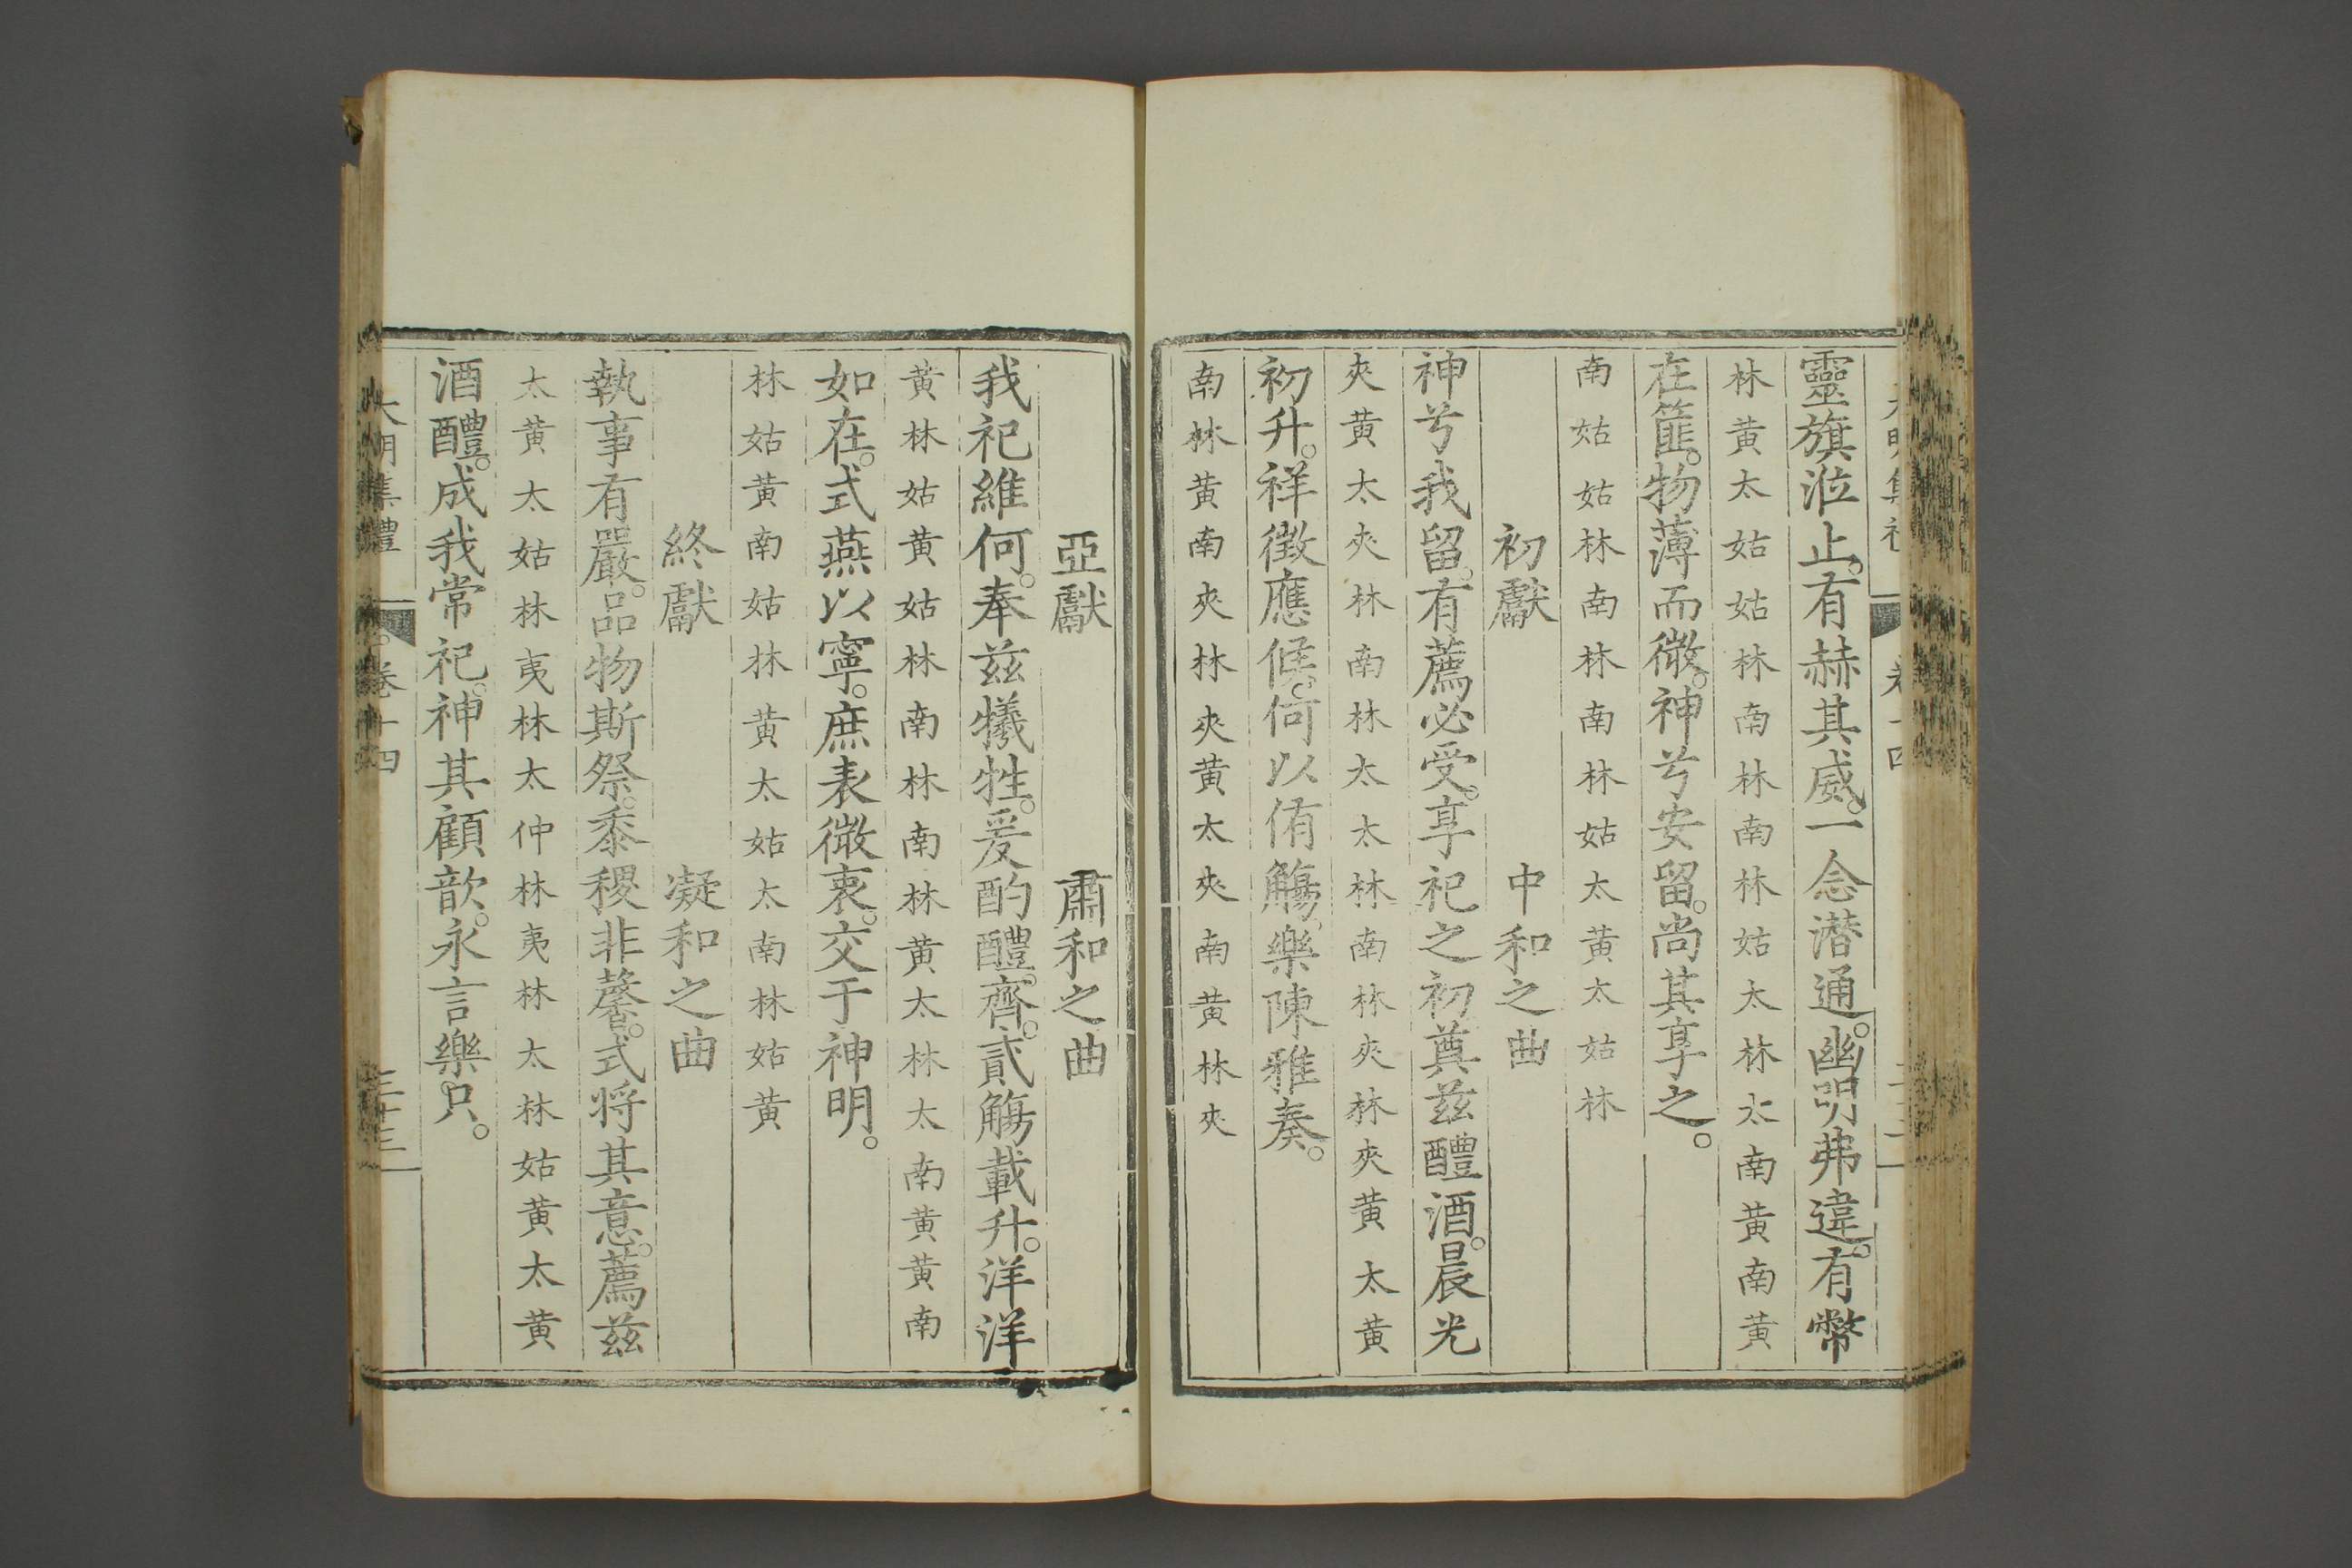 靈旗涖止。有赫其威。一念潛通。幽明弗違。有幣
林黃太姑姑林南林南林姑太林太南黃南黃
在篚。物薄而微。神兮安留。尚其享之。
南姑姑林南林南林姑太黃太姑林
初獻　中和之曲
神兮我留。有薦必受。享祀之初奠茲醴酒。晨光
夾黃太夾林南林太太林南林夾林夾黃太黃
初升。祥徵應候。何以侑觴。樂陳雅奏。
南林黃南夾林夾黃太夾南黃林夾
亞獻　肅和之曲
我祀維何。奉茲犧牲。爰酌醴。齊。貳觴載升。洋洋
黃林姑黃姑林南林南林黃太林太南黃黃南
如在。式燕以寧。庶表微衷。交于神明。
林姑黃南姑林黃太姑太南林姑黃
終獻　凝和之曲
執事有嚴。品物斯祭。黍稷非馨。式将其意。薦茲
太黃太姑林夷林太仲林夷林太林姑黃太黃
酒醴。成我常祀。神其顧歆。永言樂只。
大明集禮　卷十四　三十三